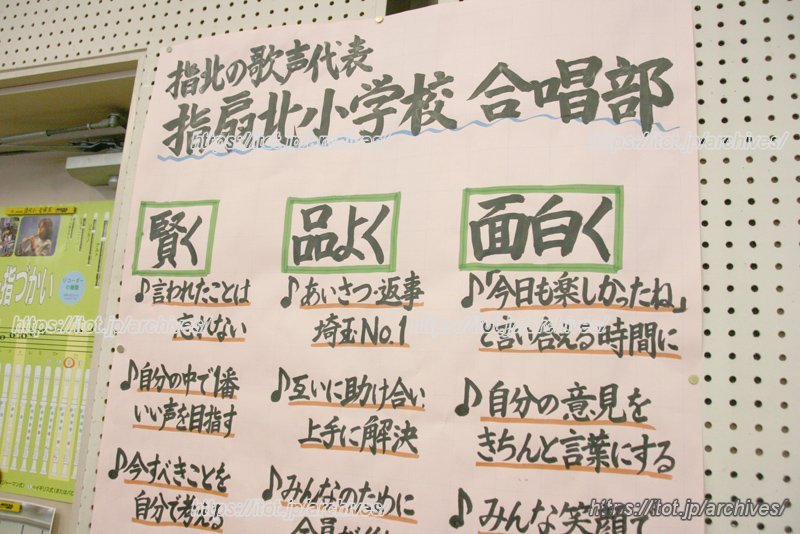 指北の歌声代表
指扇北小学校 合唱部
賢く
♪言われたことは
忘れない
♪自分の中で1番
いい声を目指す
♪今すべきことを
自分で考える
品よく
♪あいさつ・返事
埼玉No.1
♪互いに助け合い
上手に解決
♪みんなのために
面白く
♪「今日も楽しかったね」
と言い合える時間に
♪自分の意見を
きちんと言葉にする
♪みんな笑顔で
指づかい
リコーダー
https://itot.jp/archives/
https://itot.jp/archives/
https://itot.jp/archives/
https://itot.jp/archives/
https://itot.jp/archives/
https://itot.jp/archives/
https://itot.jp/archives/
https://itot.jp/archives/